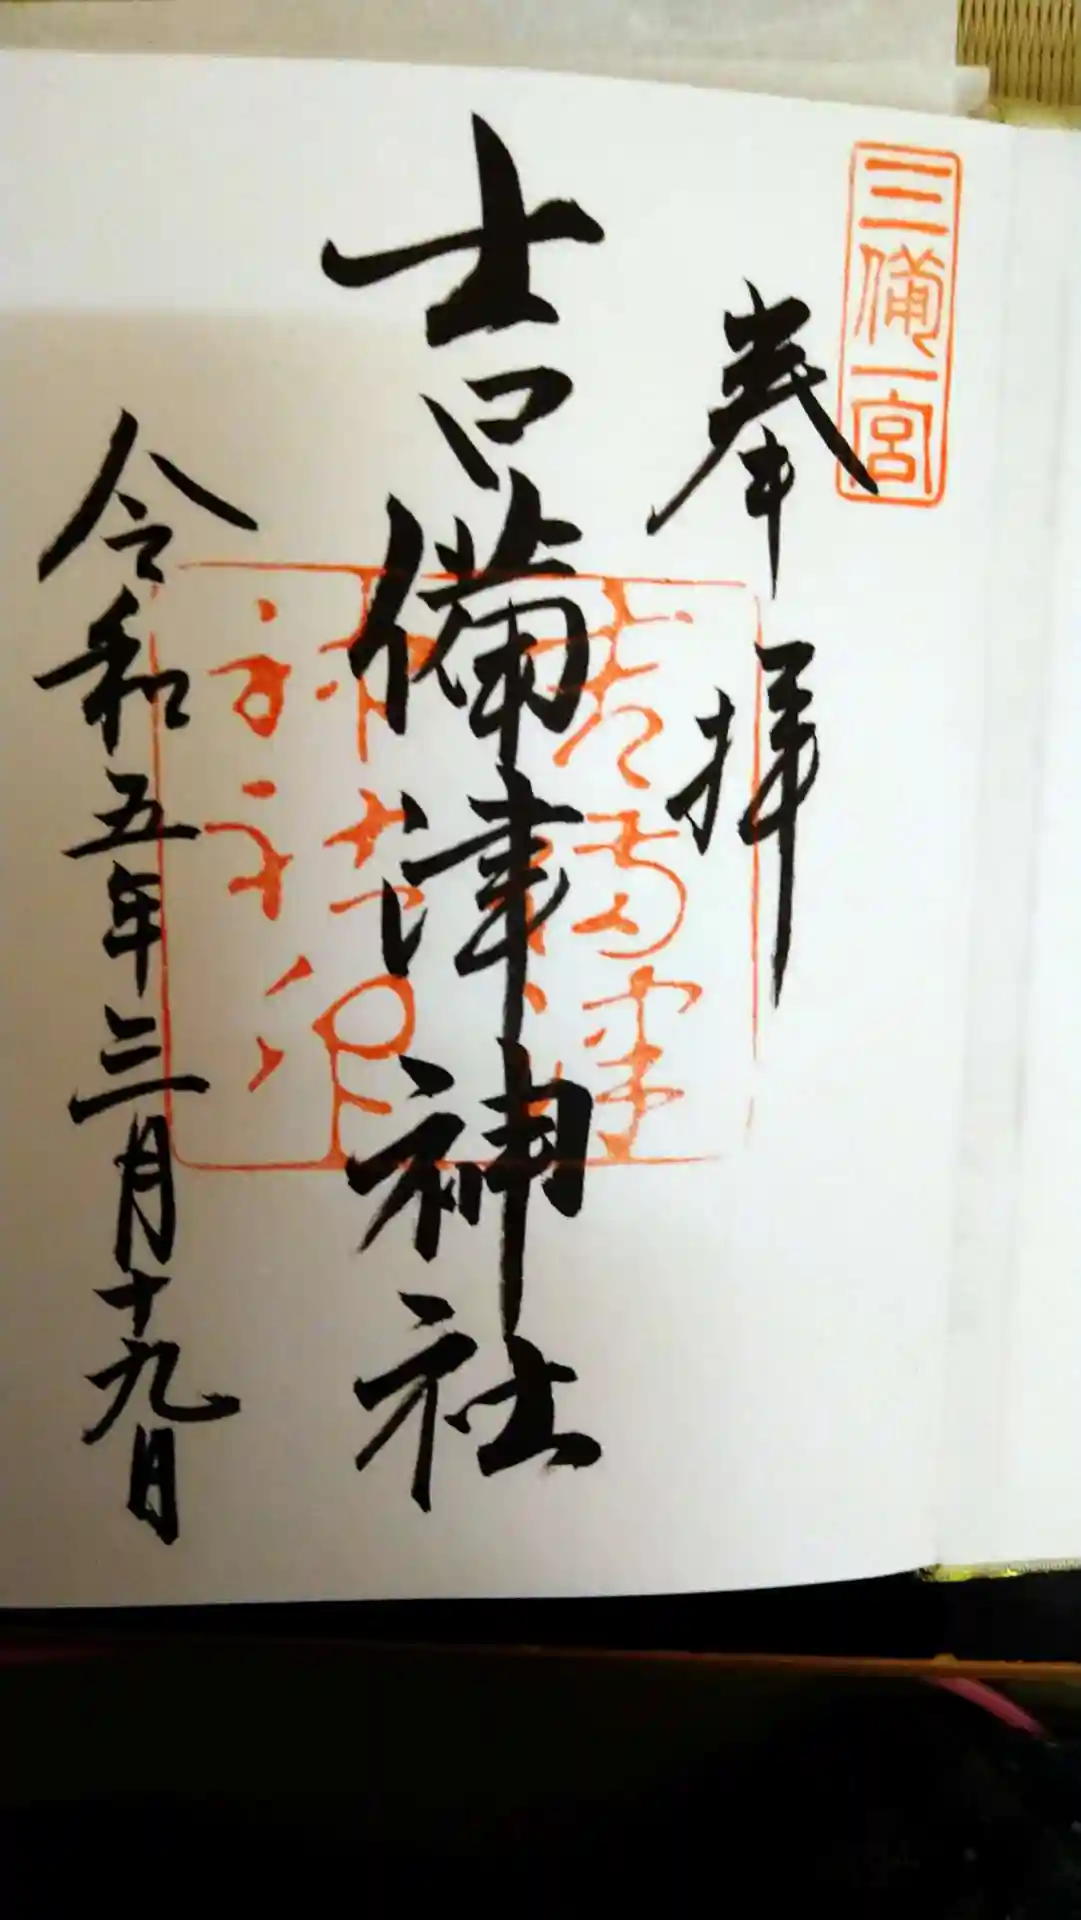 三備一宮
奉拝
吉備津神社
令和五年三月十九日